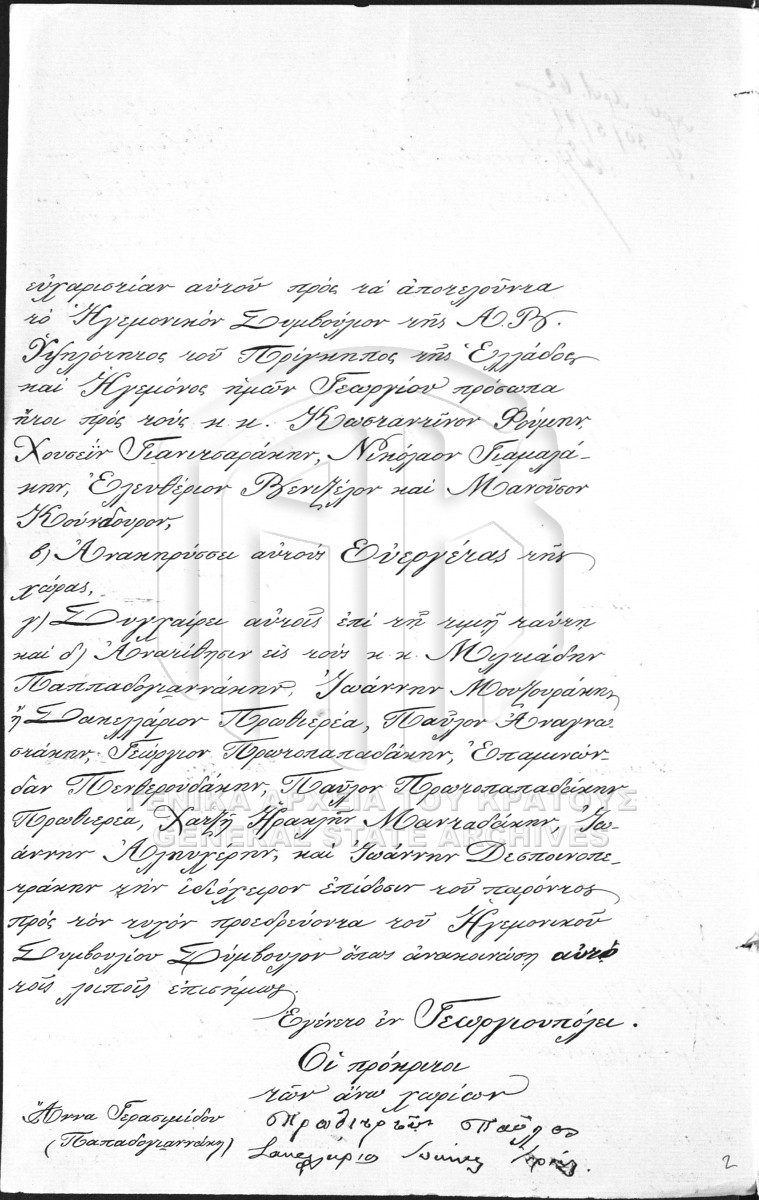 εὐχαριστίαν αὐτοῦ πρὸς τὰ ἀποτελοῦντα
τὸ Ἡγεμονικὸν Συμβούλιον τῆς Α.Β.
Ὑψηλότητος τοῦ Πρίγκηπος τῆς Ἑλλάδος
καὶ Ἡγεμόνος ἡμῶν Γεωργίου πρόσωπα
ἤτοι πρὸς τοὺς κ.κ. Κωσταντῖνον Φούμην,
Χουσεῒν Γιανιτσαράκην, Νικόλαον Γιαμαλά-
κην, Ἐλευθέριον Βενιζέλον καὶ Μανοῦσον
Κούνδουρον,
β) Ἀνακηρύσσει αὐτοὺς Εὐεργέτας τῆς
χώρας,
γ) Συγχαίρει αὐτοῖς ἐπὶ τῇ τιμῇ ταύτῃ
καὶ δ) Ἀνατίθησιν εἰς τοὺς κ.κ. Μιλτιάδην
Παππαδογιαννάκην, Ἰωάννην Μουζουράκην
ἢ Σακελλάριον Πρωθιερέα, Παῦλον Ἀναγνω-
στάκην, Γεώργιον Πρωτοπαπαδάκην, Ἐπαμινών-
δαν Πενθερουδάκην, Παῦλον Πρωτοπαπαδάκην
Πρωθιερέα, Χατζῆ Ἡρακλῆν Μανταδάκην, Ἰω-
άννην Ἀλιγιζέρην, καὶ Ἰωάννην Δεσποινοπε-
τράκην τὴν ἰδιόχειρον ἐπίδοσιν τοῦ παρόντος
πρὸς τὸν τυχὸν προεδρεύοντα τοῦ Ἡγεμονικοῦ
Συμβουλίου Σύμβουλον ὅπως ἀνακοινώσῃ αὐτὸ
τοῖς λοιποῖς ἐπισήμως.
Ἐγένετο ἐν Γεωργιουπόλει.
Οἱ πρόκριτοι
τῶν ἄνω χωρίων
Ἄννα Γερασιμίδου
(Παπαδογιαννάκη)
πρωθιερεὺς παῦλος
Σακελλάριος
2
ΓΕΝΙΚΑ ΑΡΧΕΙΑ ΤΟΥ ΚΡΑΤΟΥΣ
GENERAL STATE ARCHIVES